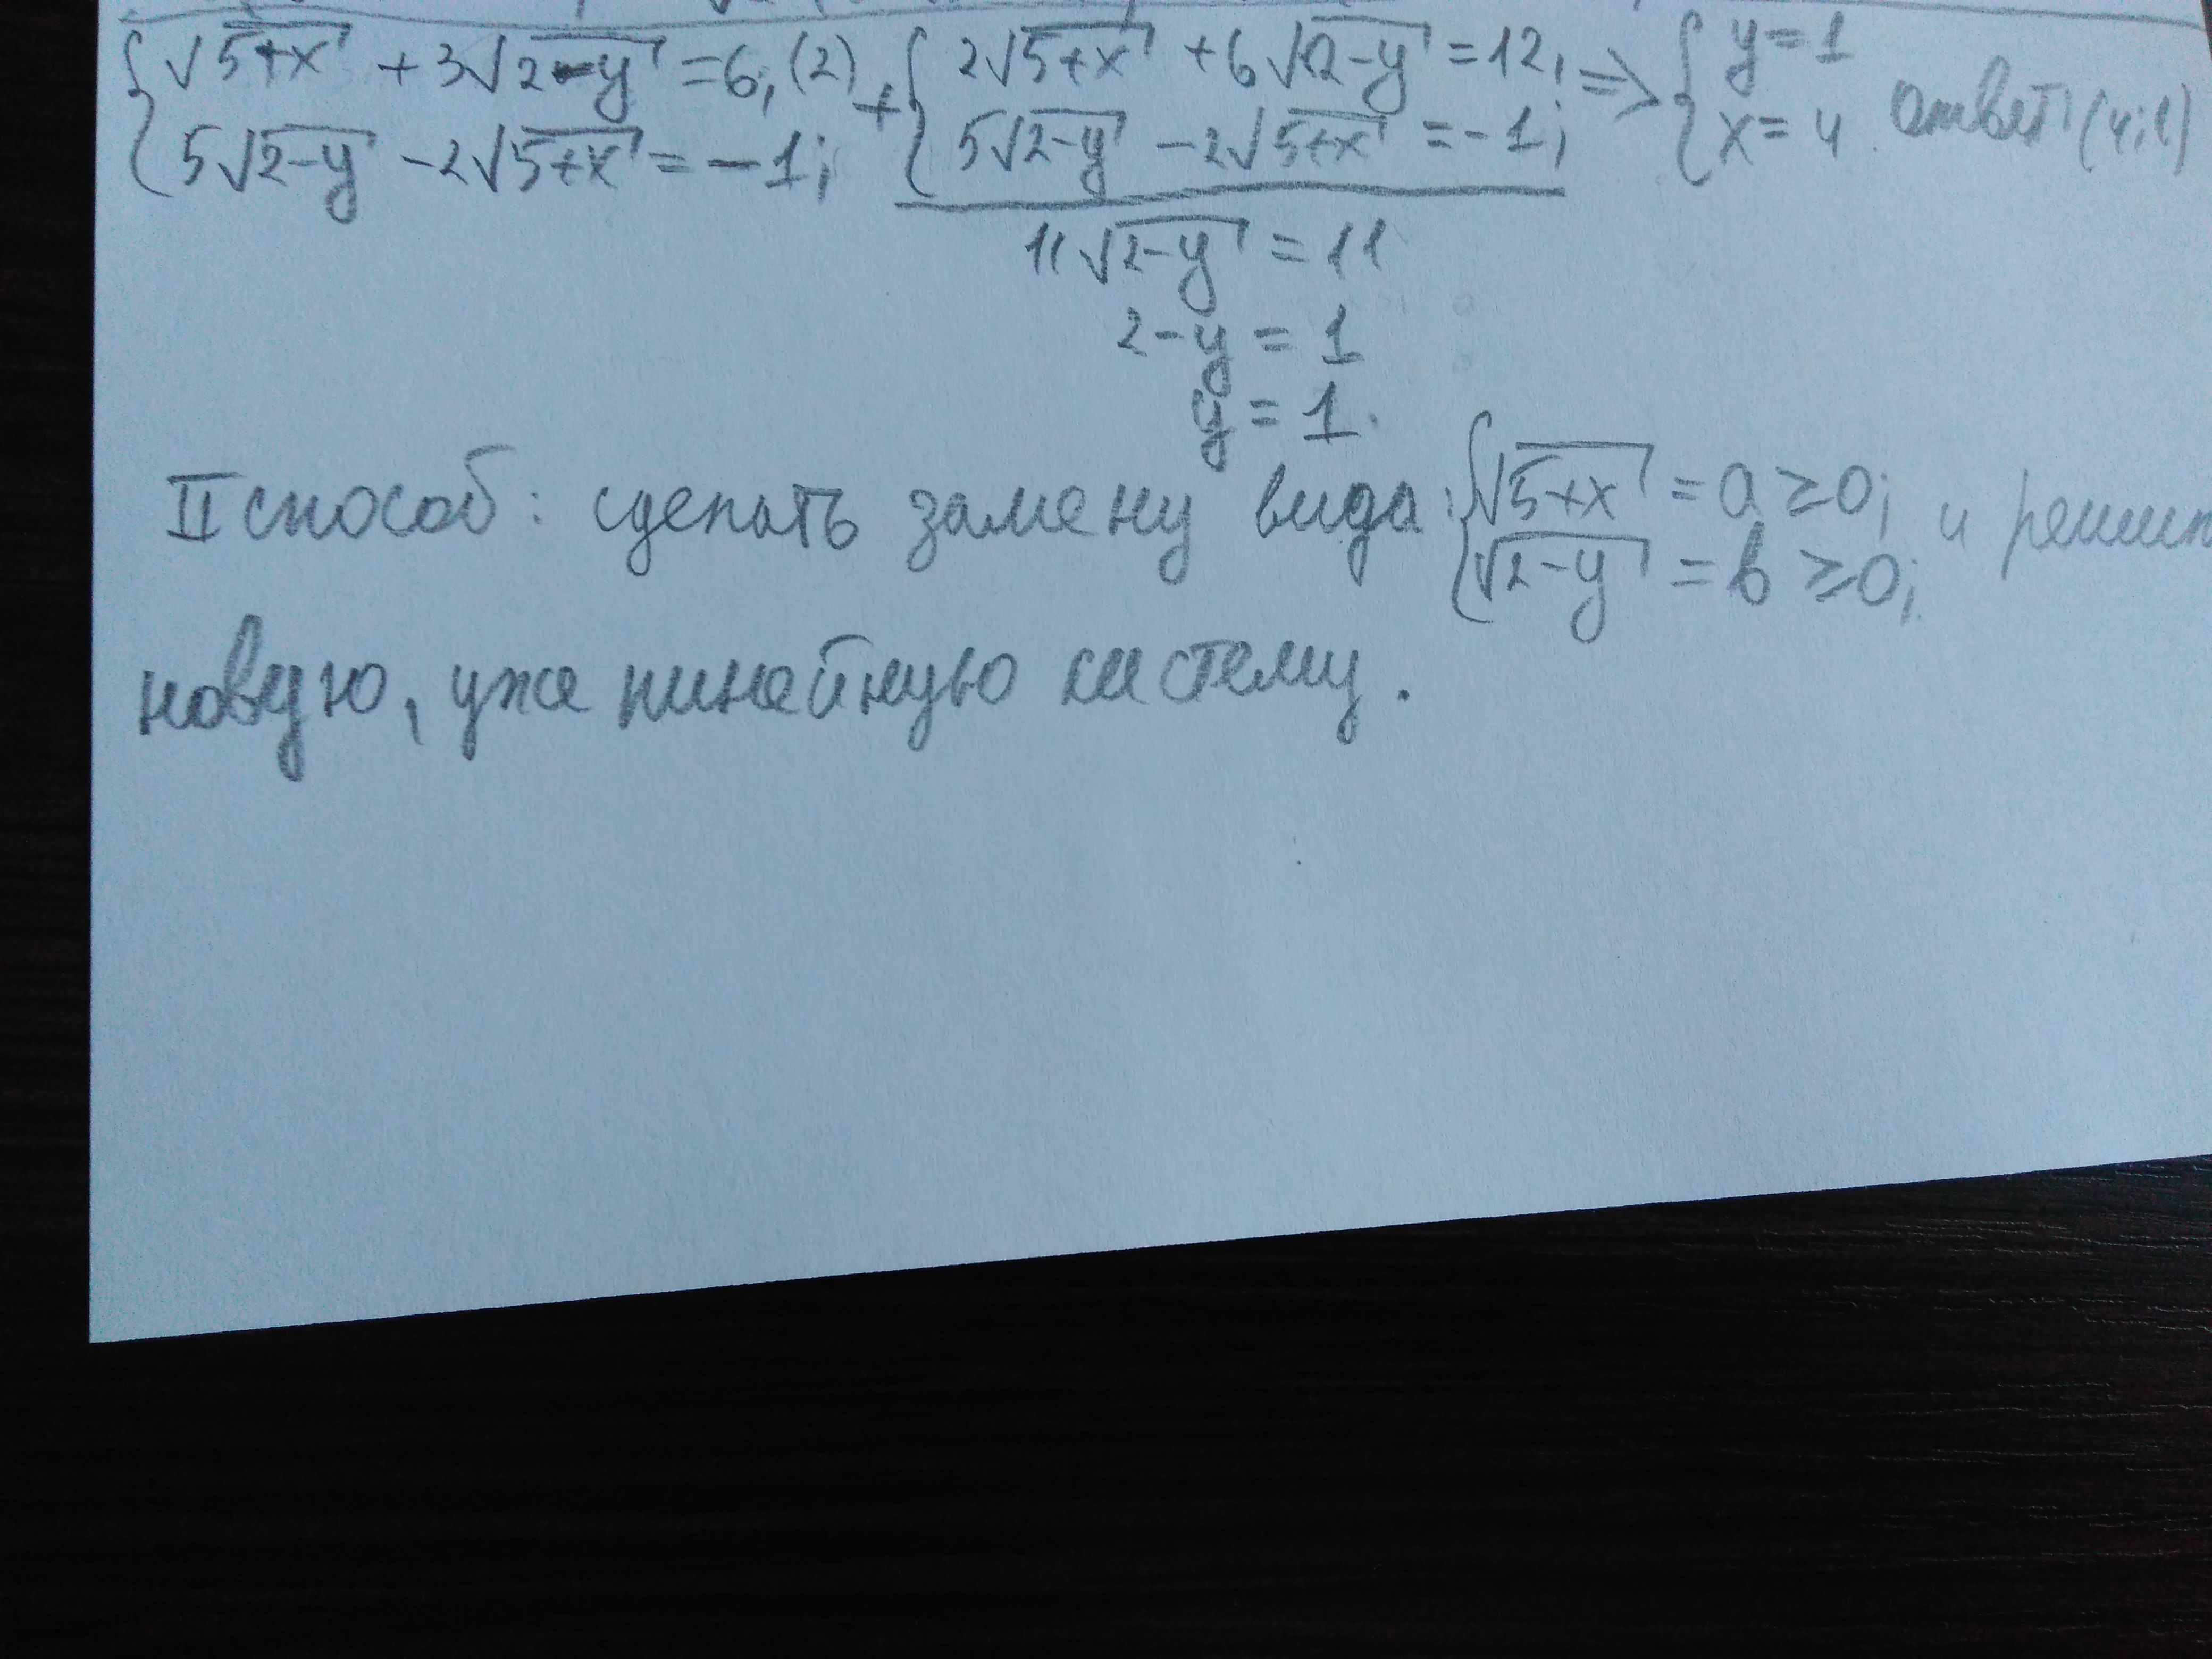 {√5+x + 3√2-y = 6; (2) + {2√5+x + 6√2-y = 12; => {y = 1
5√2-y - 2√5+x = -1; 5√2-y - 2√5+x = -1; x = 4. ответ: (4;1)
11√2-y = 11
2-y = 1
y = 1.
II способ: сделать замену вида: {√5+x = a ≥ 0; и
√2-y = b ≥ 0;
новую, уже линейную систему.